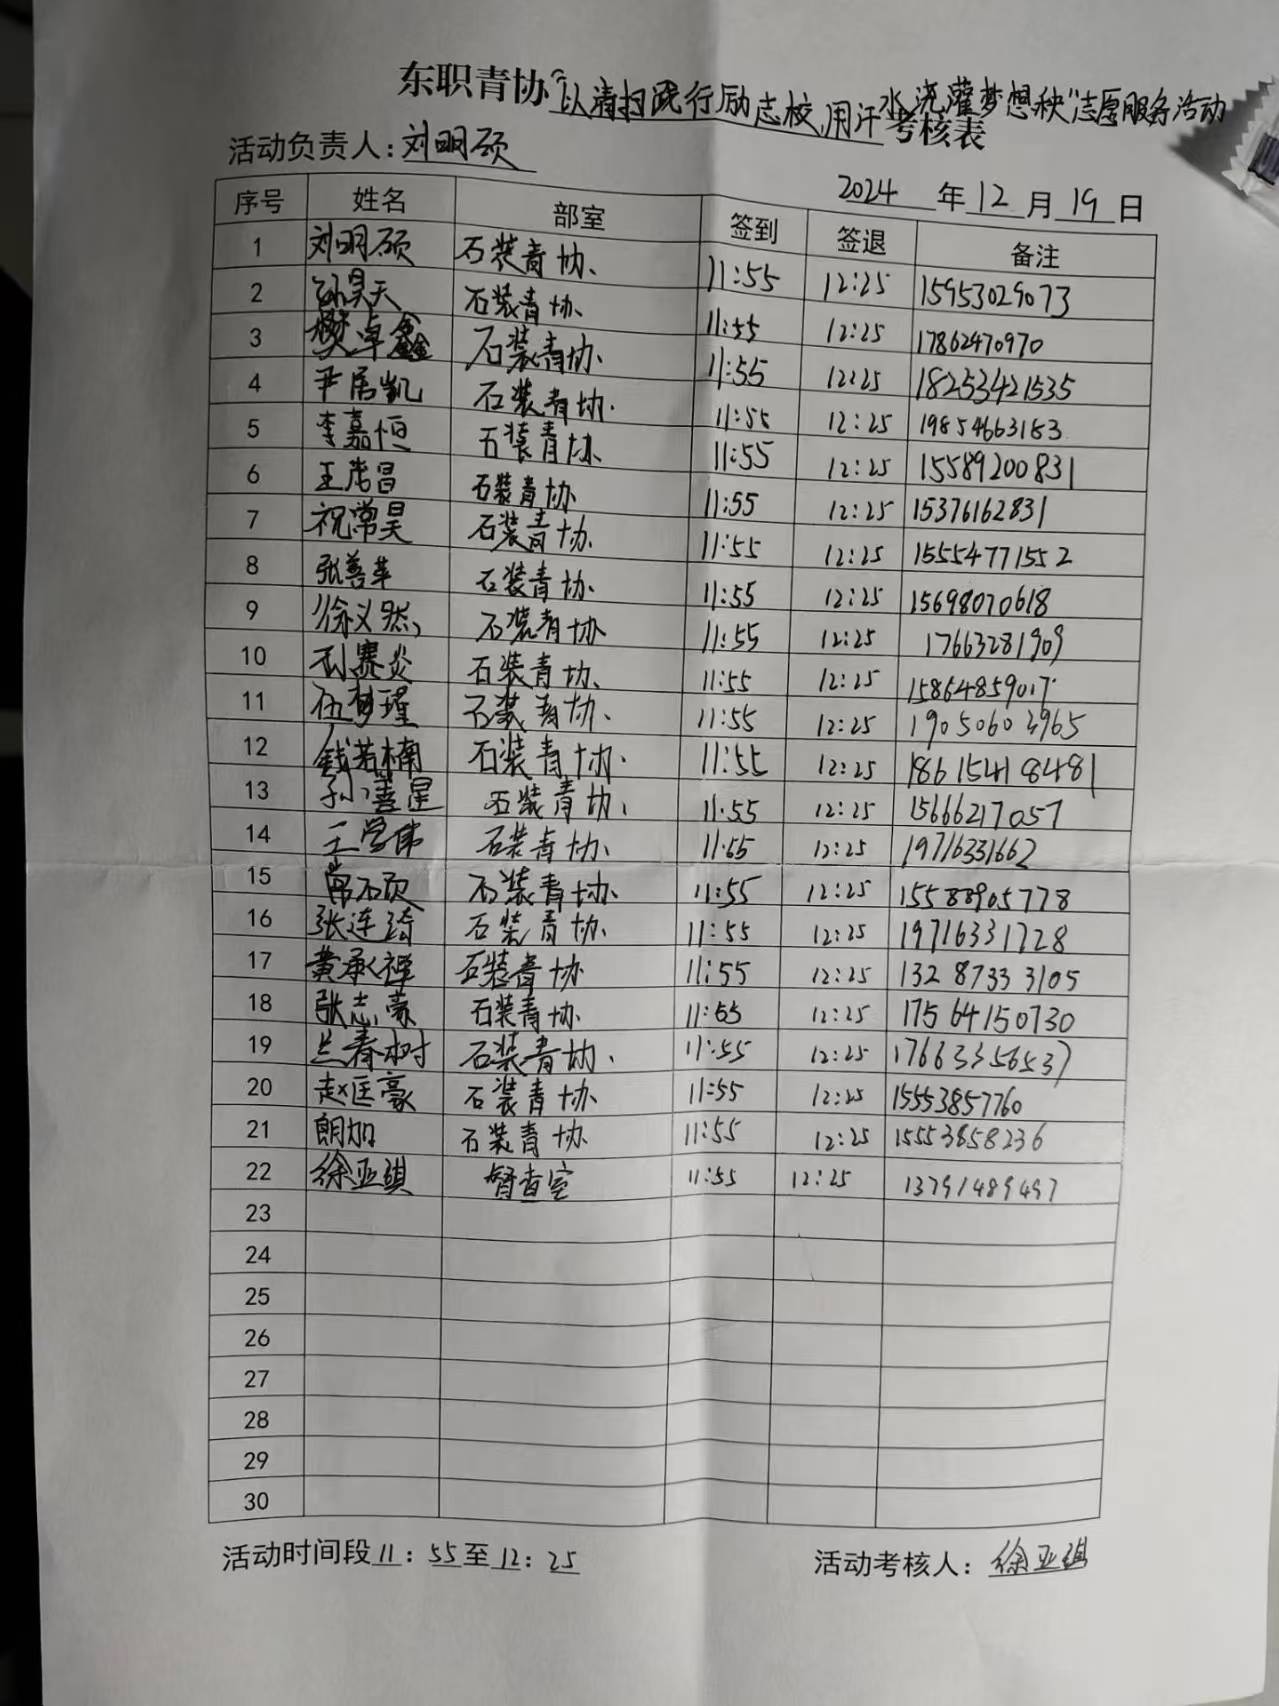 东职青协“以清扫践行励志校,用汗水浇灌梦想秧”志愿服务活动
考核表
活动负责人:刘明硕
2024年12月19日
序号 姓名 部室 签到 签退 备注
1 刘明硕 石装青协、 11:55 12:25 15953029073
2 孙昊天 石装青协、 11:55 12:25 17862470970
3 樊卓鑫 石装青协. 11:55 12:25 18253421535
4 尹居凯 石装青协. 11:55 12:25 19854663183
5 李嘉恒 石装青协、 11:55 12:25 15589200831
6 王浩昌 石装青协 11:55 12:25 15376162831
7 祝常昊 石装青协. 11:55 12:25 15554771552
8 张善革 石装青协. 11:55 12:25 15698070618
9 徐义然 石装青协 11:55 12:25 17663281909
10 刘赛炎 石装青协、 11:55 12:25 15864859017
11 伍梦瑾 石装青协、 11:55 12:25 19050603965
12 钱若楠 石装青协. 11:55 12:25 18615418481
13 孙喜星 石装青协、 11:55 12:25 15666217057
14 王学伟 石装青协、 11:55 12:25 19716331662
15 常石硕 石装青协、 11:55 12:25 15588905778
16 张连琦 石装青协、 11:55 12:25 19716331728
17 黄承禅 石装青协 11:55 12:25 13287333105
18 张志豪 石装青协. 11:55 12:25 17564150730
19 兰春树 石装青协、 11:55 12:25 17663356537
20 赵匡豪 石装青协 11:55 12:25 15553857760
21 朗加 石装青协 11:55 12:25 15553858236
22 徐亚琪 督查室 11:55 12:25 13791489497
23
24
25
26
27
28
29
30
活动时间段11:55至12:25 活动考核人:徐亚琪